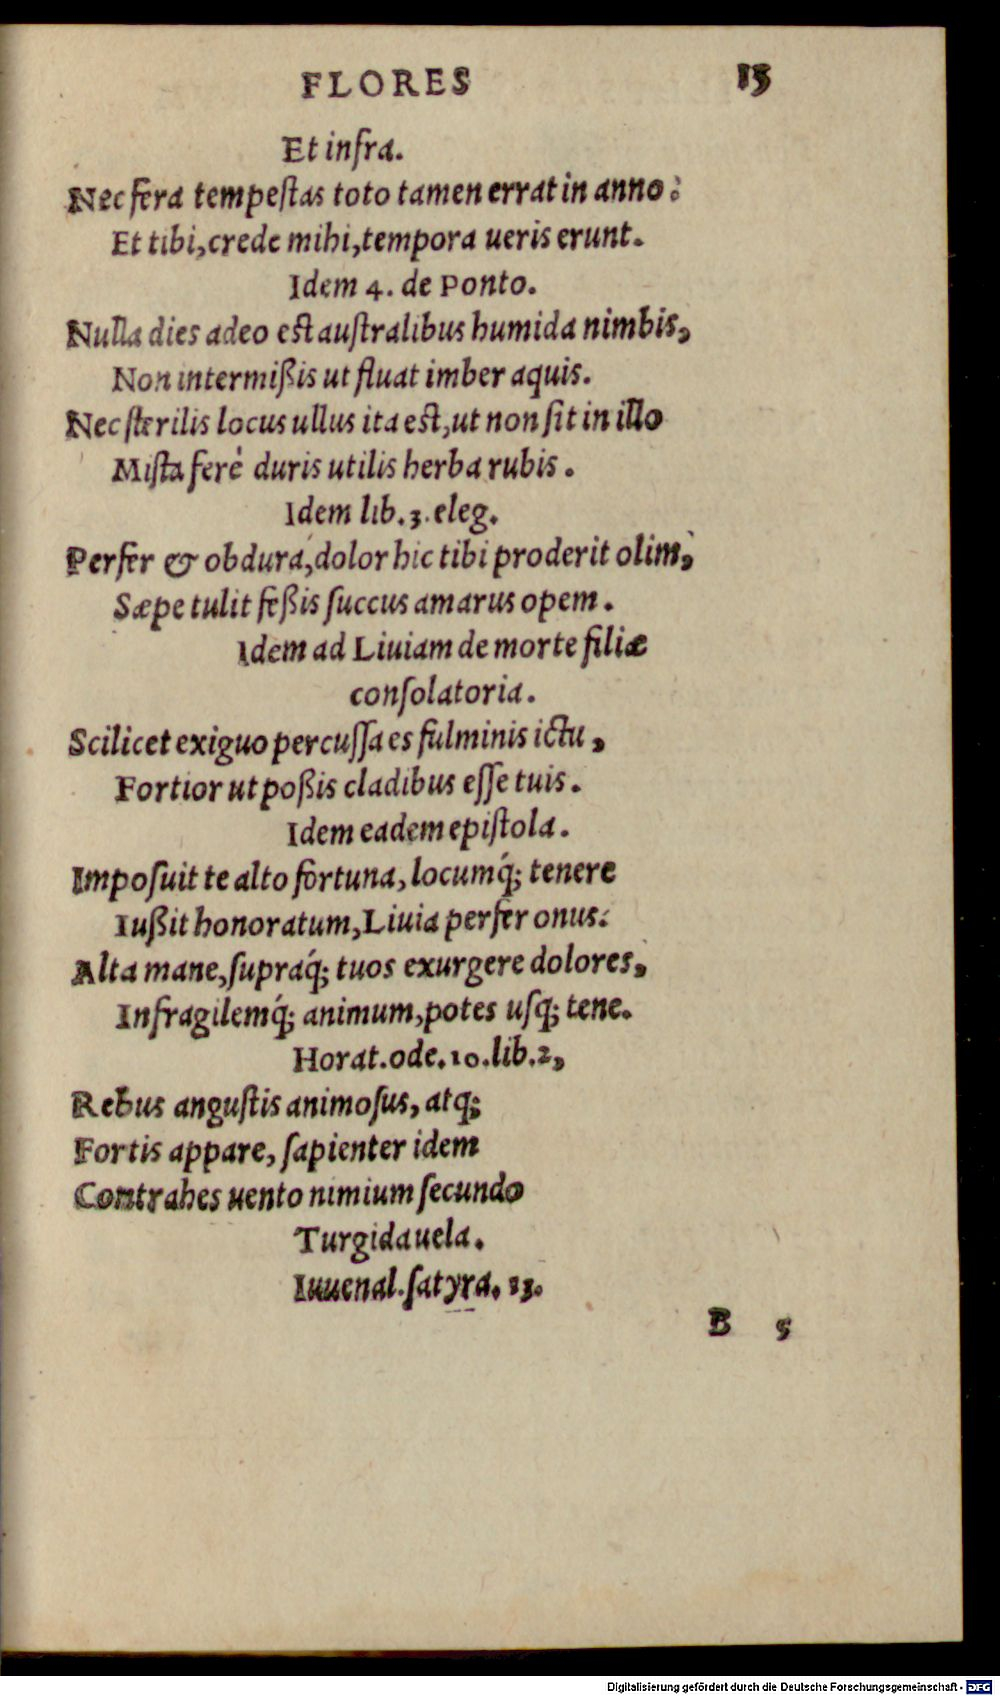 FLORES 15
Et infra.
Nec fera tempeſtas toto tamen errat in anno:
Et tibi, crede mihi, tempora ueris erunt.
Idem 4. de Ponto.
Nulla dies adeo eſt auſtralibus humida nimbis,
Non intermißis ut fluat imber aquis.
Nec ſterilis locus ullus ita eſt, ut non ſit in illo
Miſta ferè duris utilis herba rubis.
Idem lib. 3. eleg.
Perfer & obdura, dolor hic tibi proderit olim,
Sæpe tulit feßis ſuccus amarus opem.
Idem ad Liuiam de morte filiæ
conſolatoria.
Scilicet exiguo percuſſa es fulminis ictu,
Fortior ut poßis cladibus eſſe tuis.
Idem eadem epiſtola.
Impoſuit te alto fortuna, locumq́; tenere
Iußit honoratum, Liuia perfer onus:
Alta mane, ſupraq́; tuos exurgere dolores,
Infragilemq́; animum, potes uſq; tene.
Horat. ode. 10. lib. 2,
Rebus anguſtis animoſus, atq;
Fortis appare, ſapienter idem
Contrahes uento nimium ſecundo
Turgida uela.
Iuuenal. ſatyra. 13.
B 5
Digitalisierung gefördert durch die Deutsche Forschungsgemeinschaft - DFG